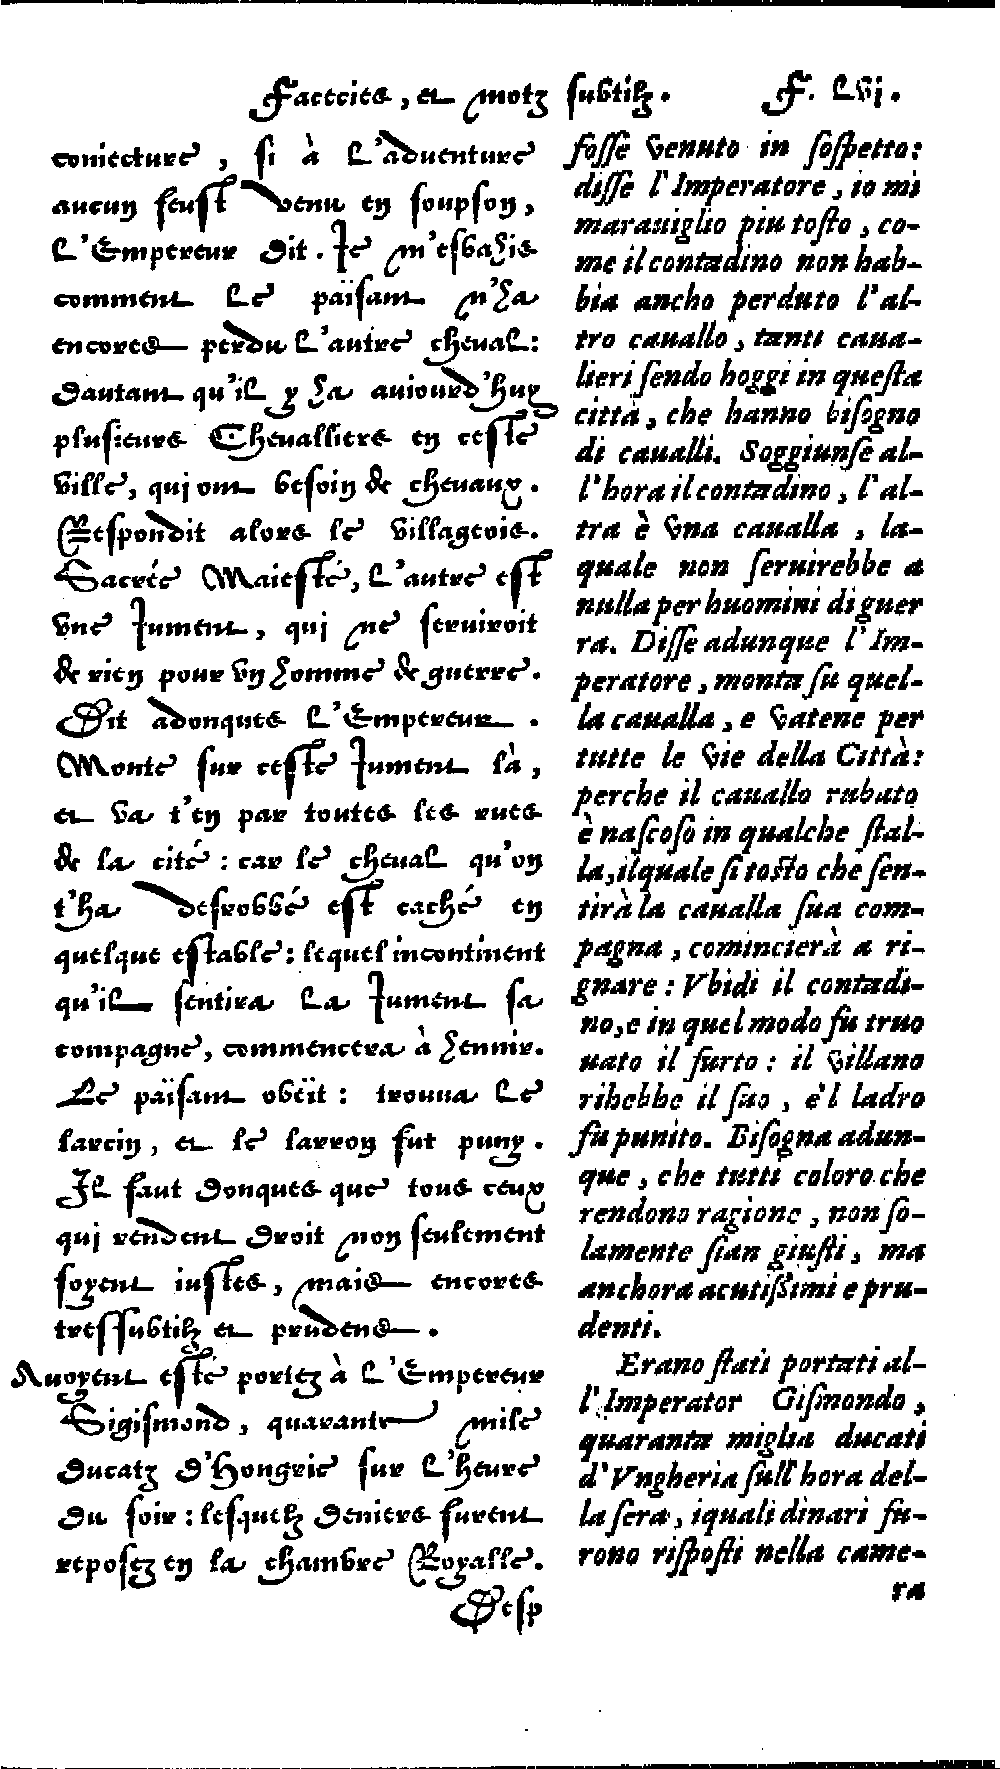 Facecies, et motz subtilz. F. LVj.
coniecture, si à l'aduenture
aucun feust venu en soupson,
L'Empereur dit. Ie m'esbahis
comment le païsant n'ha
encores perdu l'autre cheval:
dautant qu'il y ha auiourd'huy
plusieurs Chevalliers en ceste
ville, qui ont besoin de chevaux.
Respondit alors le villageois.
Sacrée Maiesté, l'autre est
vne Iument, qui ne seruiroit
de rien pour vn homme de guerre.
Dit adonques l'Empereur.
Monte sur ceste Iument là,
et va t'en par toutes les rues
de la cité: car le cheval qu'on
t'ha desrobbé est caché en
quelque estable: lequel incontinent
qu'il sentira la Iument sa
compagne, commencera à hennir.
Le païsant obëit: trouua le
larcin, et le larron fut puny.
Il faut donques que tous ceux
qui rendent droit non seulement
soyent iustes, mais encores
tressubtilz et prudens.
Auoyent esté portez à l'Empereur
Sigismond, quarante mile
Ducatz d'Hongrie sur l'heure
du soir: lesquelz deniers furent
reposez en la chambre Royalle.
Desp
fosse venuto in sospetto:
disse l'Imperatore, io mi
marauiglio piu tosto, co-
me il contadino non hab-
bia ancho perduto l'al-
tro cauallo, tanti caua-
lieri sendo hoggi in questa
città, che hanno bisogno
di caualli. Soggiunse al-
l'hora il contadino, l'al-
tra è vna caualla, la-
quale non seruirebbe a
nulla per huomini di guer
ra. Disse adunque l'Im-
peratore, monta su quel-
la caualla, e vatene per
tutte le vie della Città:
perche il cauallo rubato
è nascoso in qualche stal-
la, ilquale si tosto che sen-
tirà la caualla sua com-
pagna, comincierà a ri-
gnare: Vbidi il contadi-
no, e in quel modo fu truo
uato il furto: il villano
rihebbe il suo, è'l ladro
fu punito. Bisogna adun-
que, che tutti coloro che
rendono ragione, non so-
lamente sian giusti, ma
anchora acutissimi e pru-
denti.
Erano stati portati al-
l'Imperator Gismondo,
quaranta miglia ducati
d'Vngheria sull'hora del-
la sera, i quali dinari fu-
rono risposti nella came-
ra